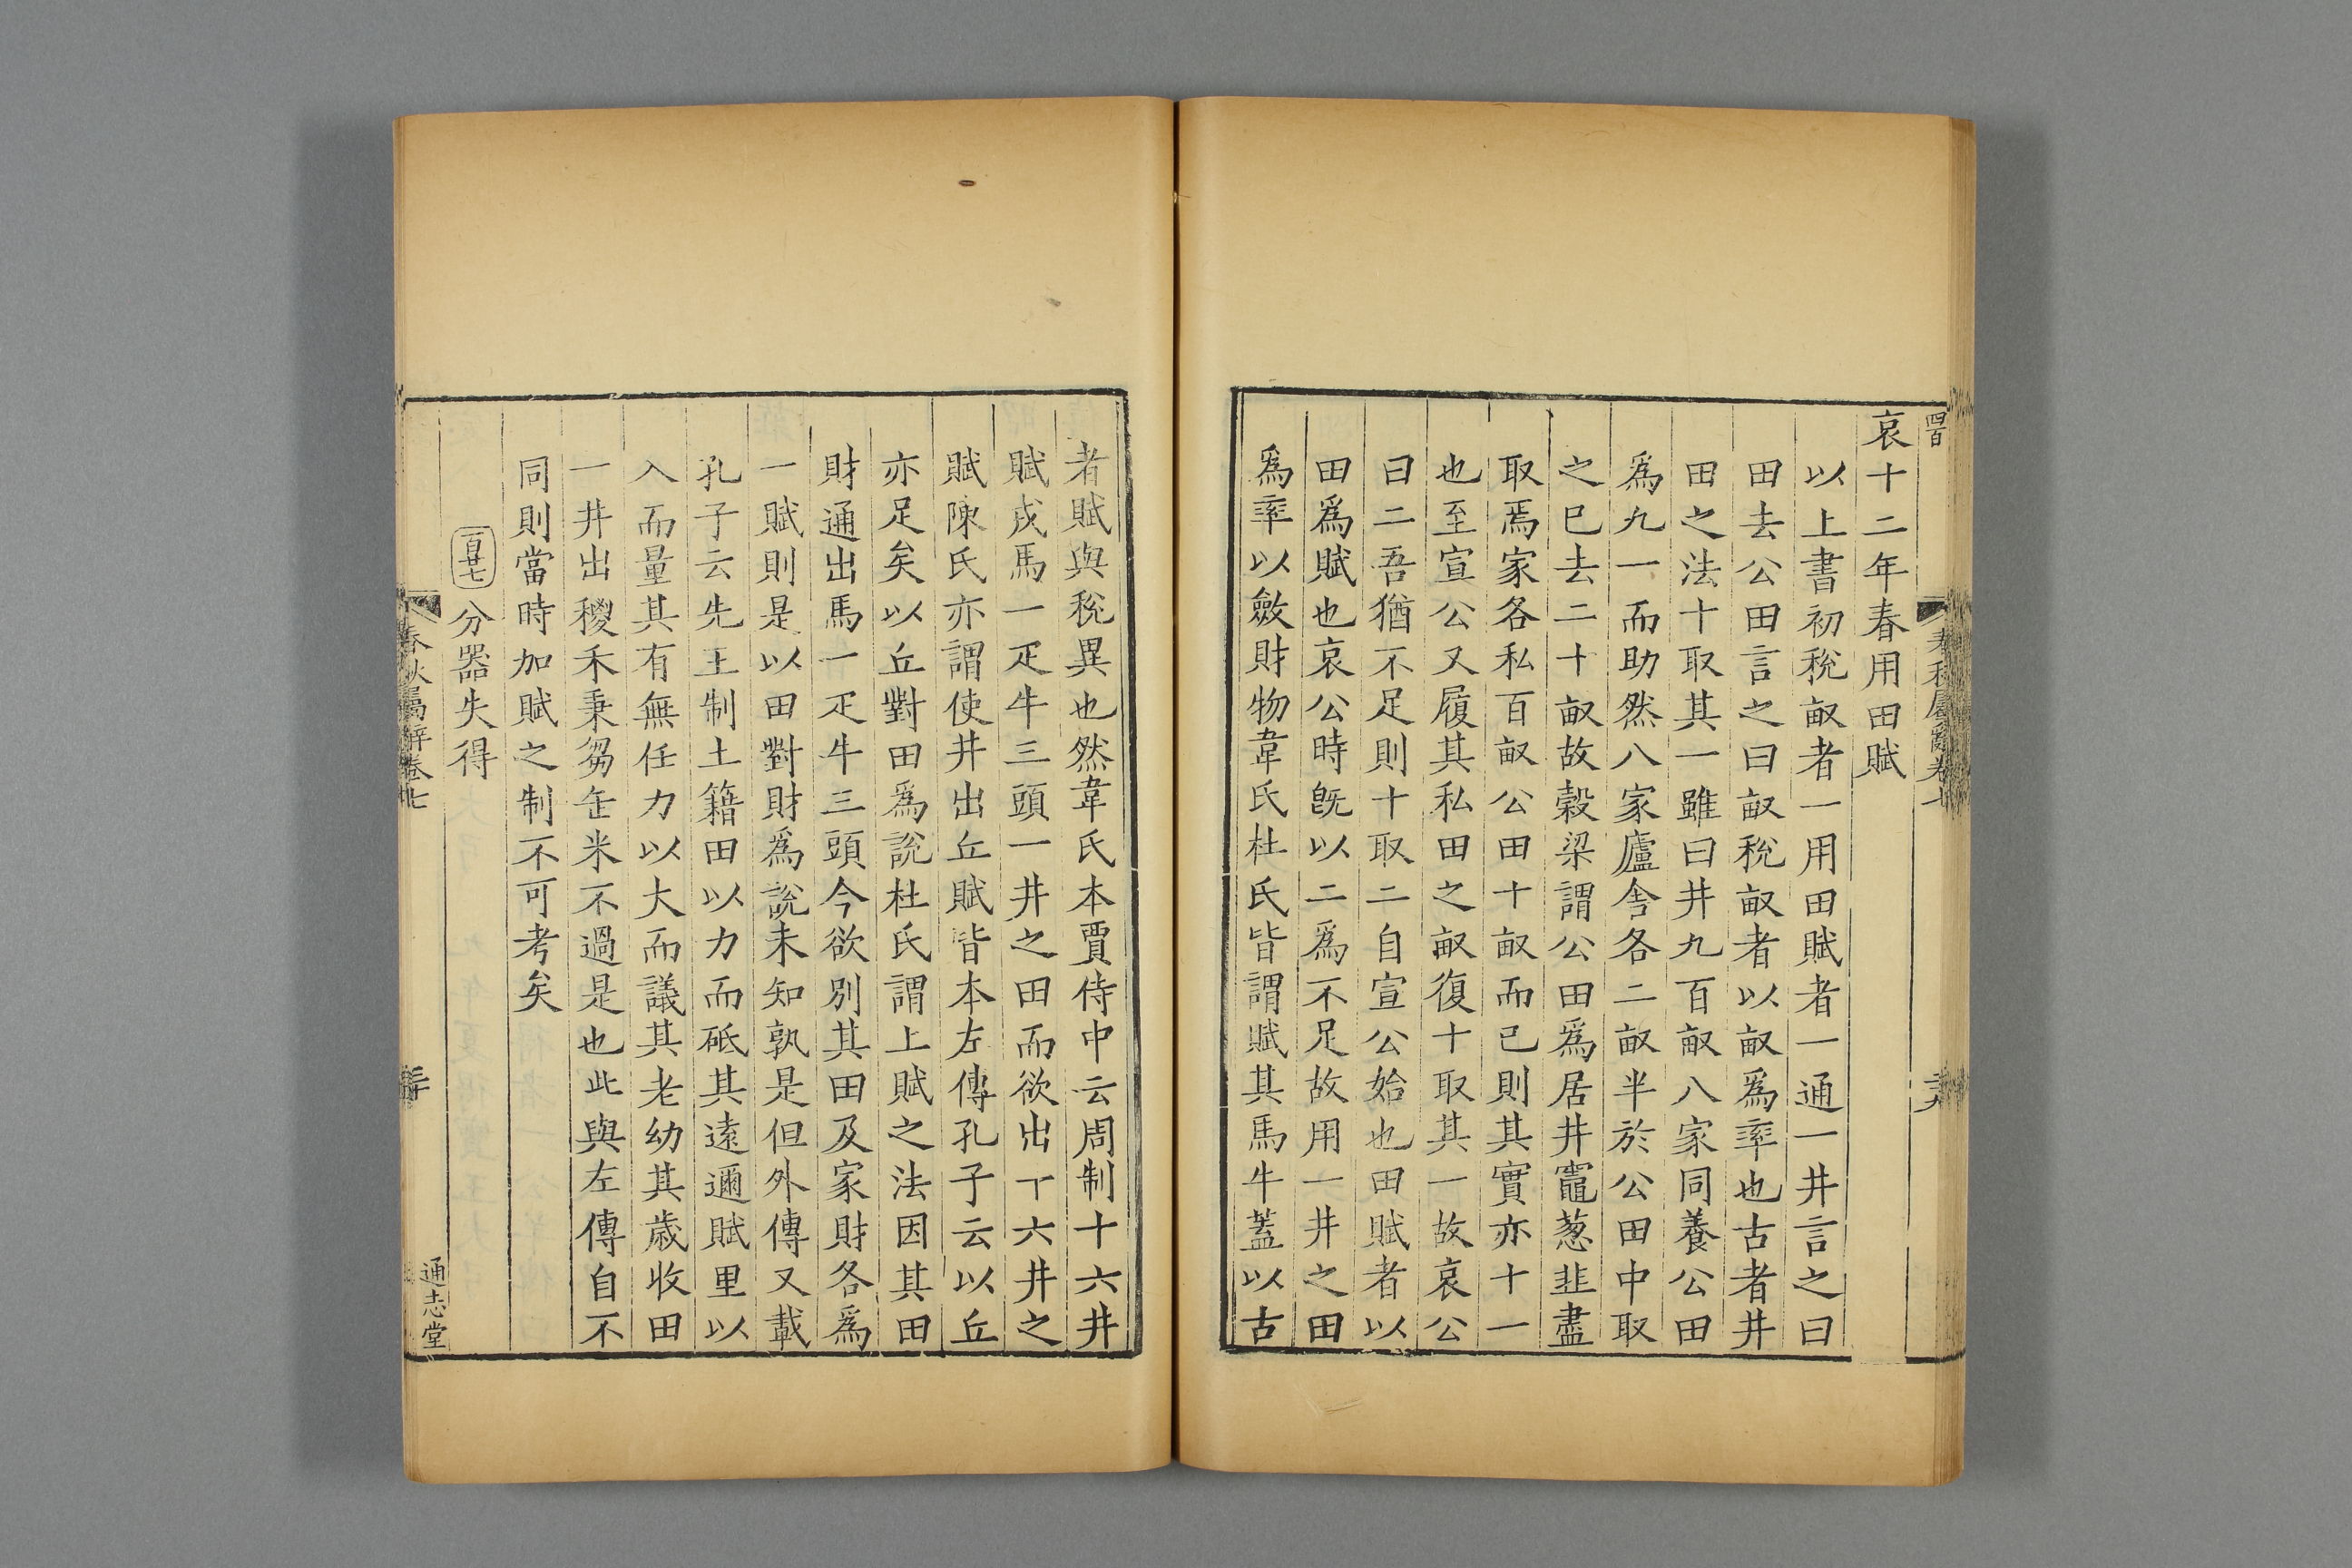 哀十二年春用田賦
以上書初稅畝者一用田賦者一通一井言之曰
田去公田言之曰畝稅畝者以畝爲率也古者井
田之法十取其一雖曰井九百畝八家同養公田
爲九一而助然八家廬舎各二畝半於公田中取
之巳去二十畝故榖梁謂公田爲居井竈葱韭盡
取焉家各私百畝公田十畝而已則其實亦十一
也至宣公又履其私田之畝復十取其一故哀公
曰二吾猶不足則十取二自宣公始也田賦者以
田爲賦也哀公時旣以二爲不足故用一井之田
爲率以斂財物韋氏杜氏皆謂賦其馬牛蓋以古
者賦與稅異也然韋氏本賈侍中云周制十六井
賦戎馬一疋牛三頭一井之田而欲出丅六井之
賦陳氏亦謂使井出丘賦皆本左傳孔子云以丘
亦足矣以丘對田爲說杜氏謂上賦之法因其田
財通出馬一疋牛三頭今欲別其田及家財各爲
一賦則是以田對財爲說未知孰是但外傳又載
孔子云先王制土籍田以力而砥其遠邇賦里以
入而量其有無任力以夫而議其老幼其歲收田
一井出稷禾秉芻缶米不過是也此與左傳自不
同則當時加賦之制不可考矣
百廿七
分器失得
春秋屬辭卷七
通志堂